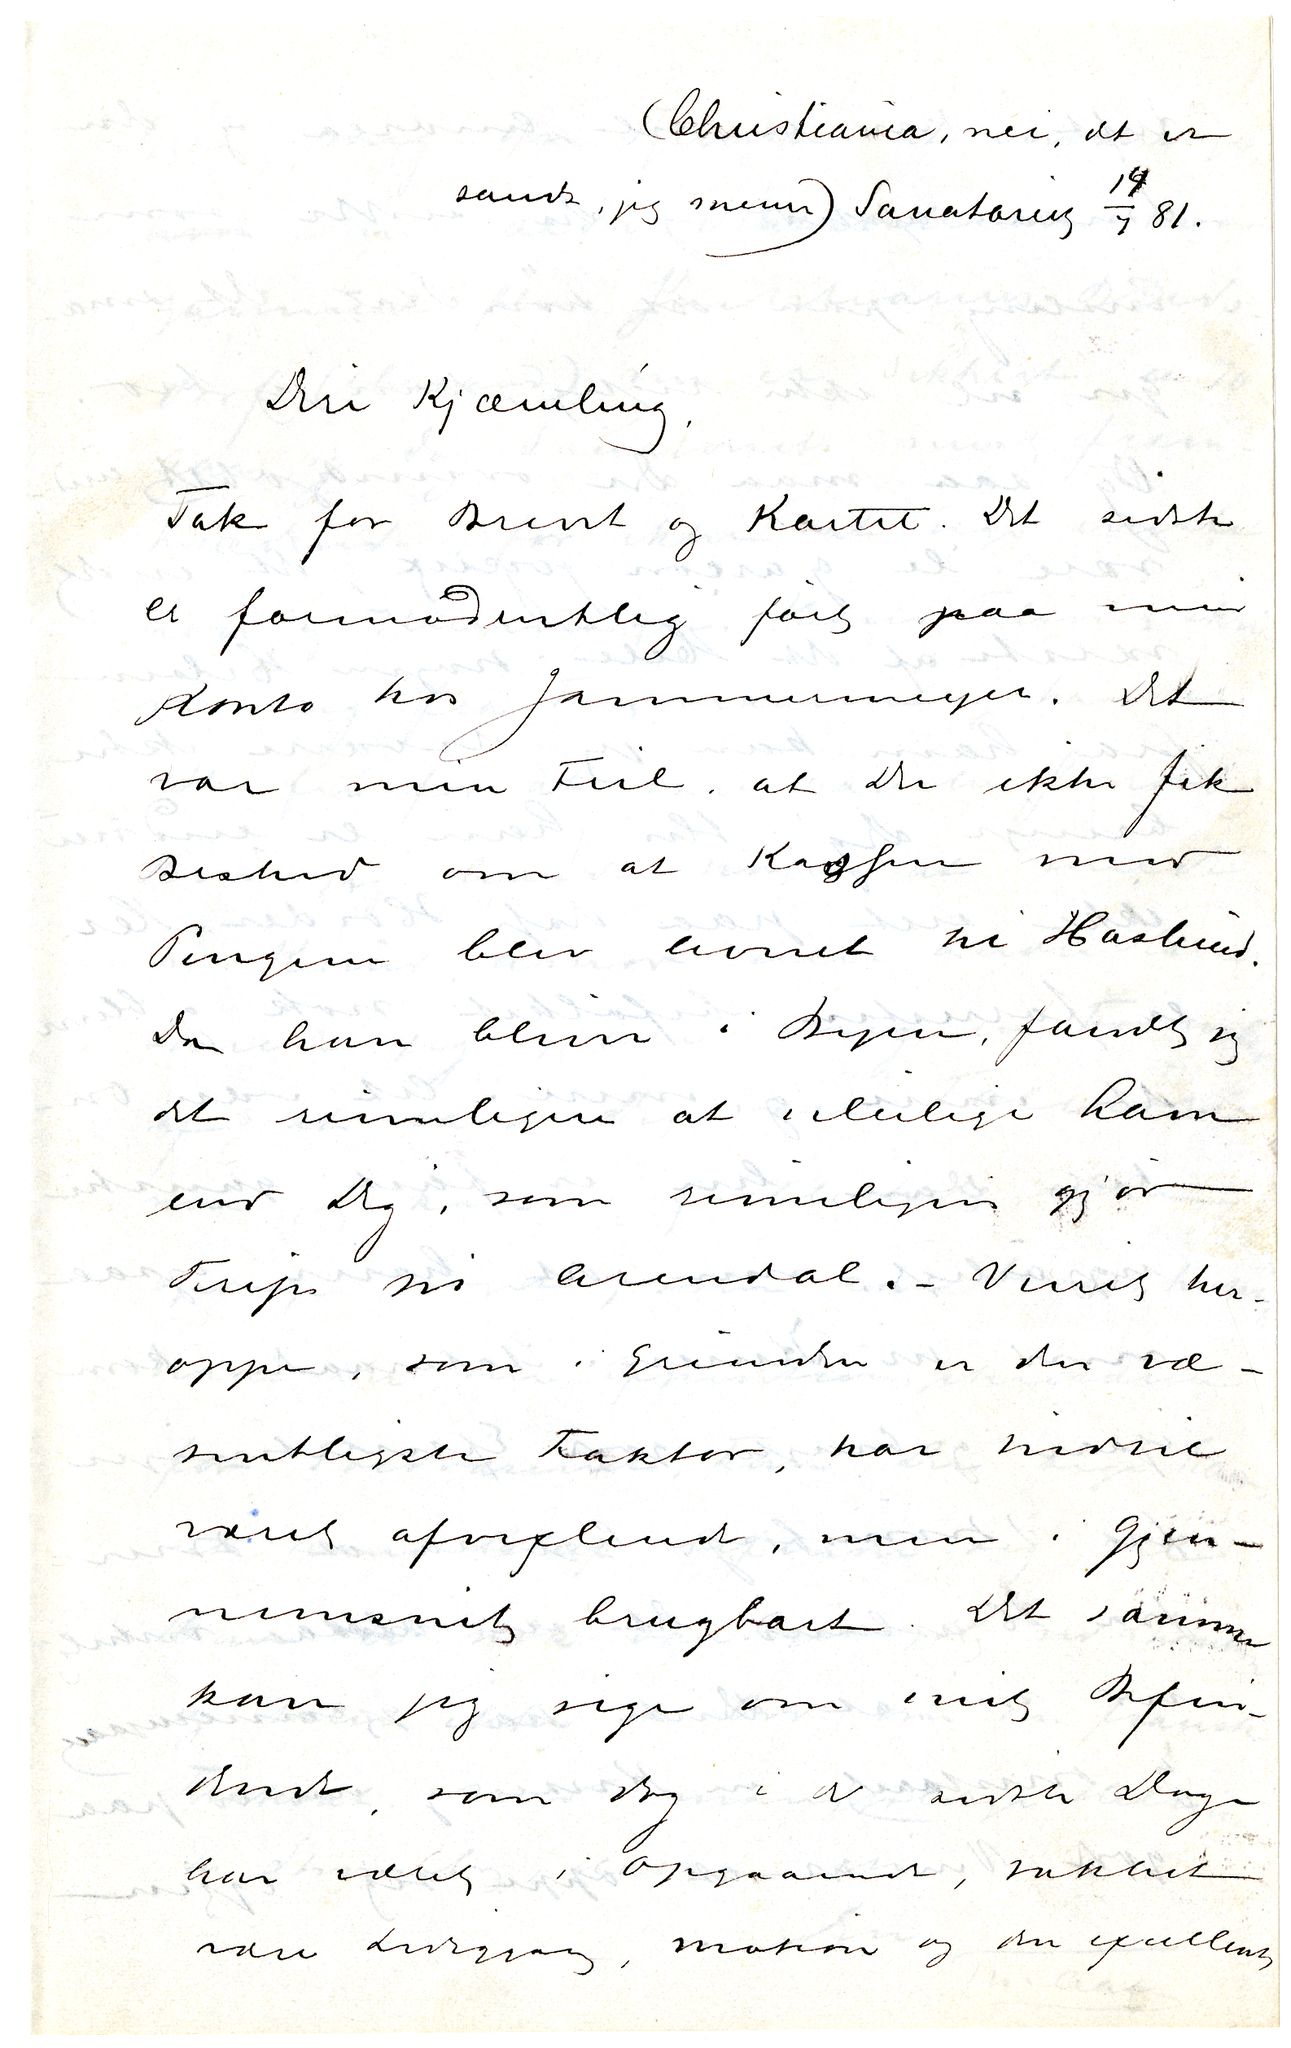 (Christiania, nei, det er
sandt, jeg mener) Sanatoriet 14/7 81.
Din Kjæmling,
Tak for Brevet og Kartet. Det sidste
er formodentlig ført paa min
Konto hos Jammermeyer. Det
var min Feil, at Du ikke fik
Besked om at Kassen med
Pengene blev levret til Haslund.
Da han bliver i Byen, fandt jeg
det rimeligere at uleilige ham
end Dig, som rimeligvis gjør
Trip til Arendal. – Veiret her-
oppe, som i Grunden er den væ-
sentligste Faktor, har hidtil
været afvexlende, men i Gjen-
nemsnit brugbart. Det samme
kan jeg sige om mit Befin-
dende, som dog i de sidste Dage
har været i Opgaaende, takket
være Lediggang, Motion og den excellente